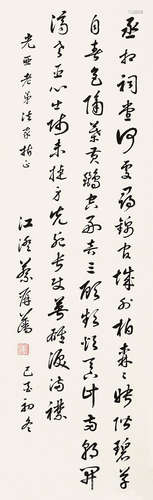 丞相祠堂何處尋錦官城外柏森〻映階碧草
自春色隔葉黃鸝空好音三顧頻煩天下計兩朝開
濟老臣心出師未捷身先死長使英雄淚滿襟
光亞老弟法家指正
江浦
初冬